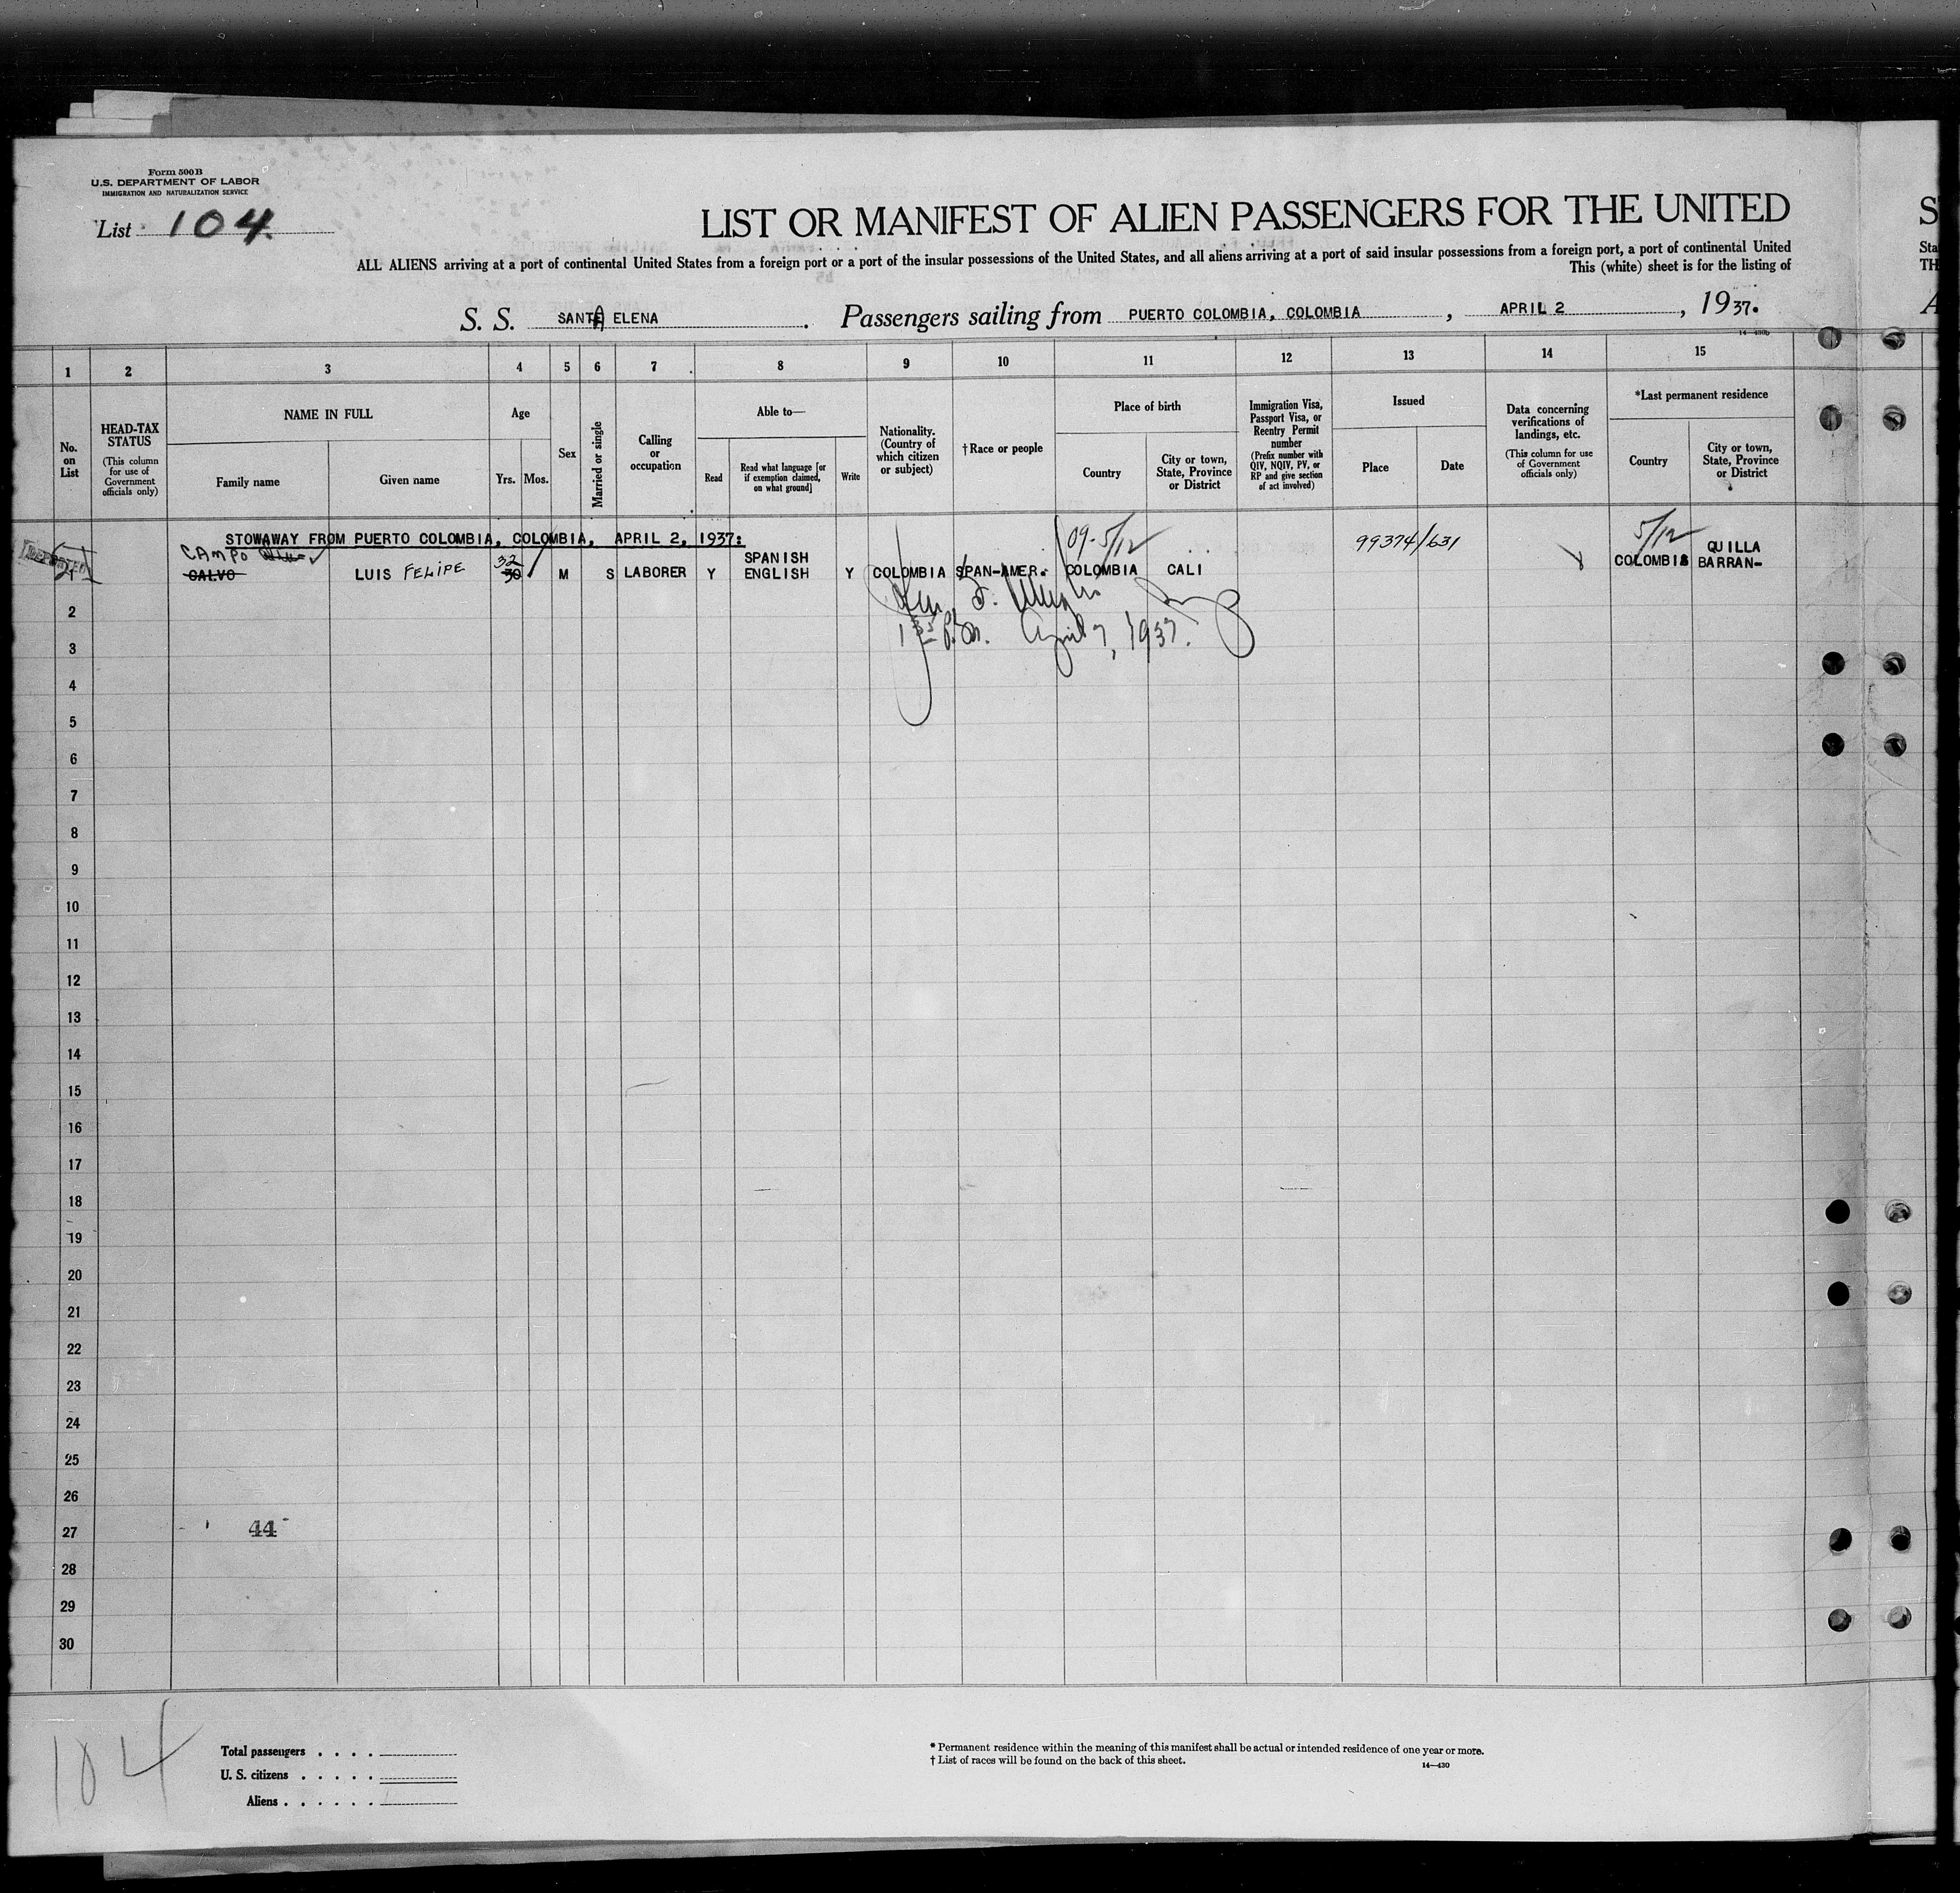 Form 500B
U.S. DEPARTMENT OF LABOR
IMMIGRATION AND NATURALIZATION SERVICE
List 104
LIST OR MANIFEST OF ALIEN PASSENGERS FOR THE UNITED
S
ALL ALIENS arriving at a port of continental United States from a foreign port or a port of the insular possessions of the United States, and all aliens arriving at a port of said insular possessions from a foreign port, a port of continental United
Sta
This (white) sheet is for the listing of
TH
S. S. SANTA ELENA . Passengers sailing from PUERTO COLOMBIA, COLOMBIA , APRIL 2 , 1937.
A
14—430b
1 2 3 4 5 6 7 8 9 10 11 12 13 14 15
No. on List
HEAD-TAX STATUS
(This column for use of Government officials only)
NAME IN FULL
Family name
Given name
Age
Yrs.
Mos.
Sex
Married or single
Calling or occupation
Able to—
Read
Read what language [or if exemption claimed, on what ground]
Write
Nationality. (Country of which citizen or subject)
†Race or people
Place of birth
Country
City or town, State, Province or District
Immigration Visa, Passport Visa, or Reentry Permit number
(Prefix number with QIV, NQIV, PV, or RP and give section of act involved)
Issued
Place
Date
Data concerning verifications of landings, etc.
(This column for use of Government officials only)
*Last permanent residence
Country
City or town, State, Province or District
STOWAWAY FROM PUERTO COLOMBIA, COLOMBIA, APRIL 2, 1937:
09-5/12
99374/631
5/12
CAMPO
32
SPANISH
QUILLA
1 CALVO LUIS FELIPE 30 M S LABORER Y ENGLISH Y COLOMBIA SPAN-AMER. COLOMBIA CALI COLOMBIA BARRAN-
2
April 7, 1937.
3
4
5
6
7
8
9
10
11
12
13
14
15
16
17
18
19
20
21
22
23
24
25
26
27 44
28
29
30
104
Total passengers . . . .
U. S. citizens . . . . .
Aliens . . . . . .
* Permanent residence within the meaning of this manifest shall be actual or intended residence of one year or more.
† List of races will be found on the back of this sheet.
14—430